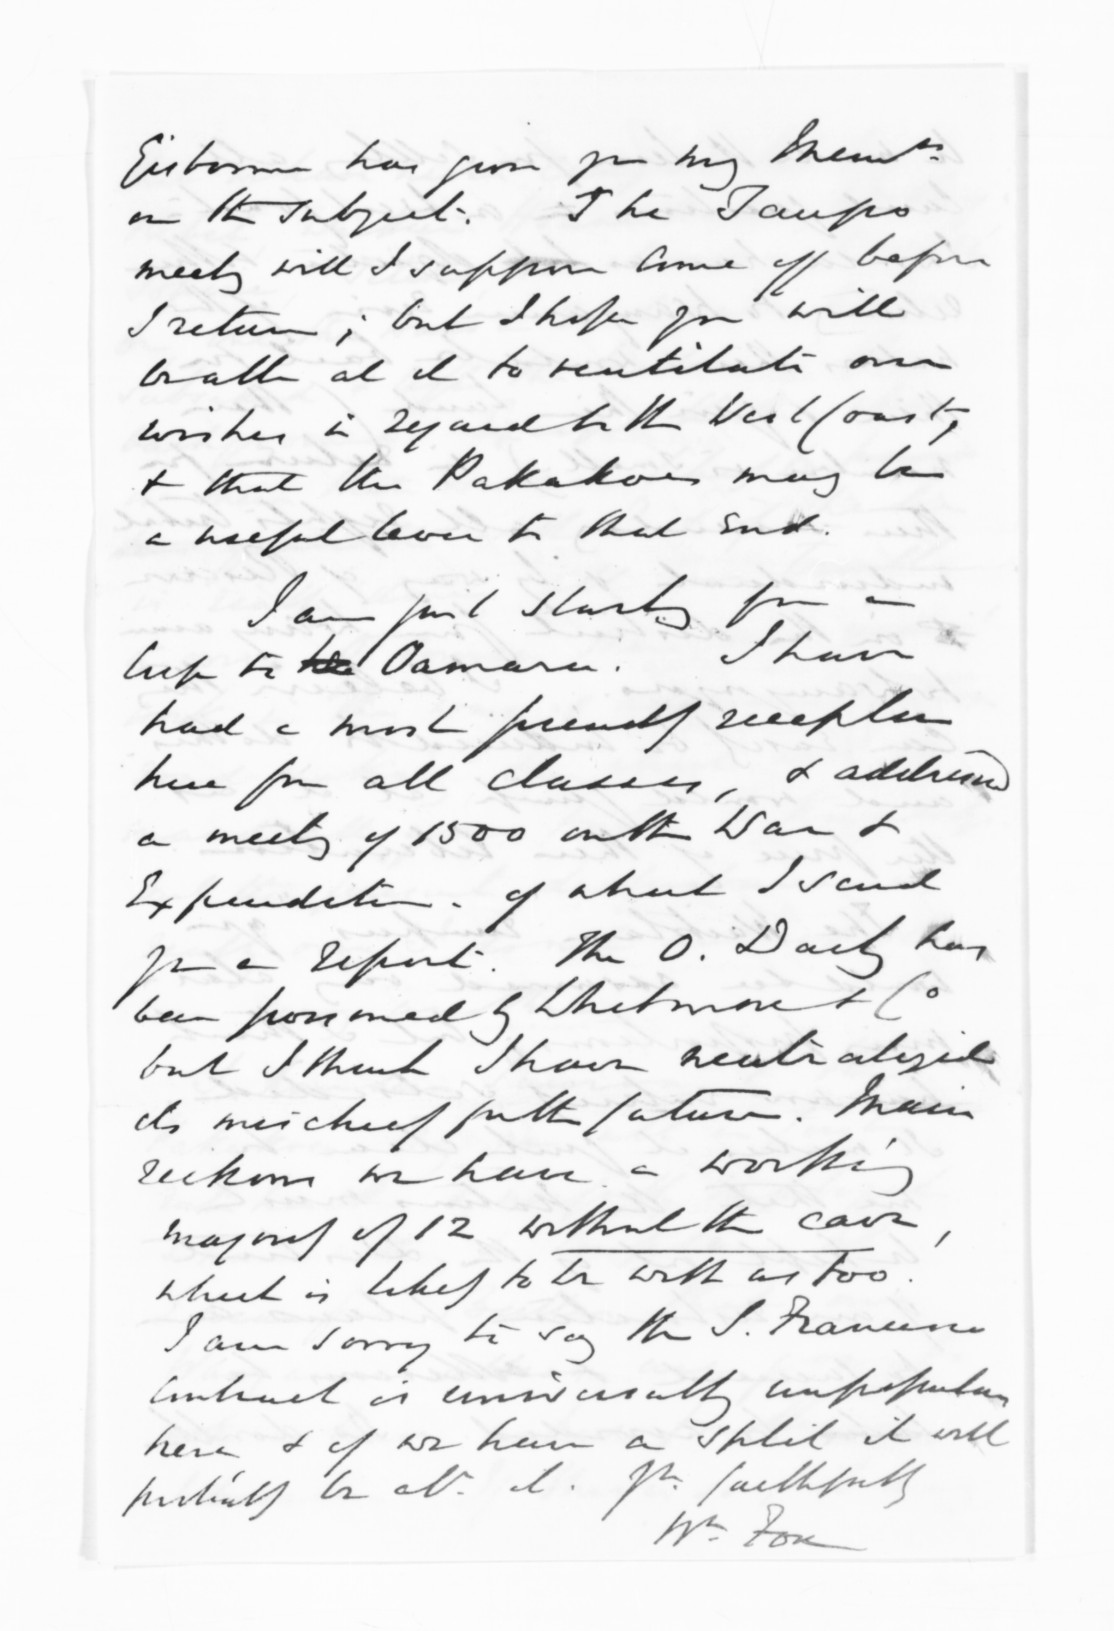 Gisborne has given you my Memdm
on the subject. The Taupo
meetg will I suppose come off before
I return; but I hope you will
be able at it to ventilate our
wishes in regard to the West Coast,
& that the Pakakohes may be
a useful lever to that end.
I am just startg for a
trip to the Oamaru. I have
had a most friendly reception
here from all classes, & addressed
a meetg of 1500 on the War &
Expenditure. of which I send
you a report. The O. Daily has
been poisoned by Whitmore & Co
but I think I have neutralized
its mischief for the future. Main
reckons we have a working
majority of 12 without the cave,
which is likely to be with us too.
I am sorry to say the S. Francisco
contract is universally unpopular
here & if we have a split it will
probably be abt it. Yrs. faithfully
Wm Fox